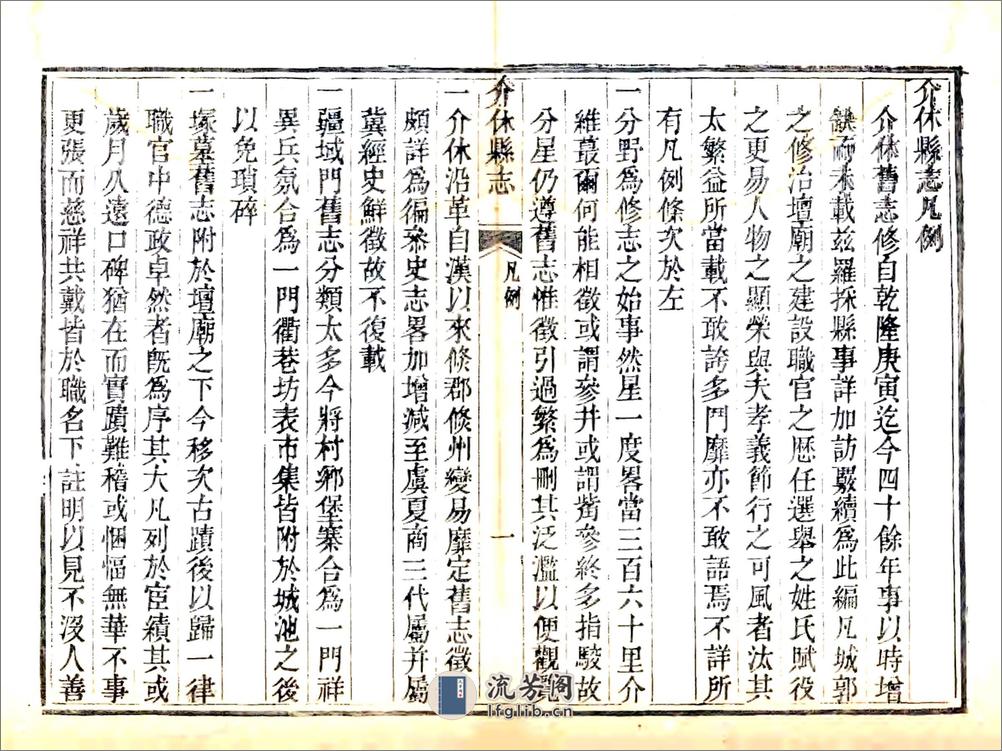 介休縣志凡例
介休舊志修自乾隆庚寅迄今四十餘年事以時增
缺而未載玆羅採縣事詳加訪覈續爲此編凡城郭
之修治壇廟之建設職官之歷任選舉之姓氏賦役
之更易人物之顯榮與夫孝義節行之可風者汰其
太繁益所當載不敢誇多鬥靡亦不敢語焉不詳所
有凡例條次於左
一分野爲修志之始事然星一度畧當三百六十里介
維蕞爾何能相徵或謂參井或謂觜參終多指駁故
分星仍遵舊志惟徵引過繁爲刪其泛濫以便觀覽
介休縣志
凡例
一
一介休沿革自漢以來倐郡倐州變易靡定舊志徵
頗詳爲徧叅史志畧加增減至虞夏商三代屬并屬
冀經史鮮徵故不復載
一疆域門舊志分類太多今將村鄉堡寨合爲一門祥
異兵氛合爲一門衢巷坊表市集皆附於城池之後
以免瑣碎
一塚墓舊志附於壇廟之下今移次古蹟後以歸一律
職官中德政卓然者旣爲序其大凡列於宦績其或
歲月久遠口碑猶在而實蹟難稽或悃愊無華不事
更張而慈祥共戴皆於職名下註明以見不沒人善
流芳閣
lfglib.cn